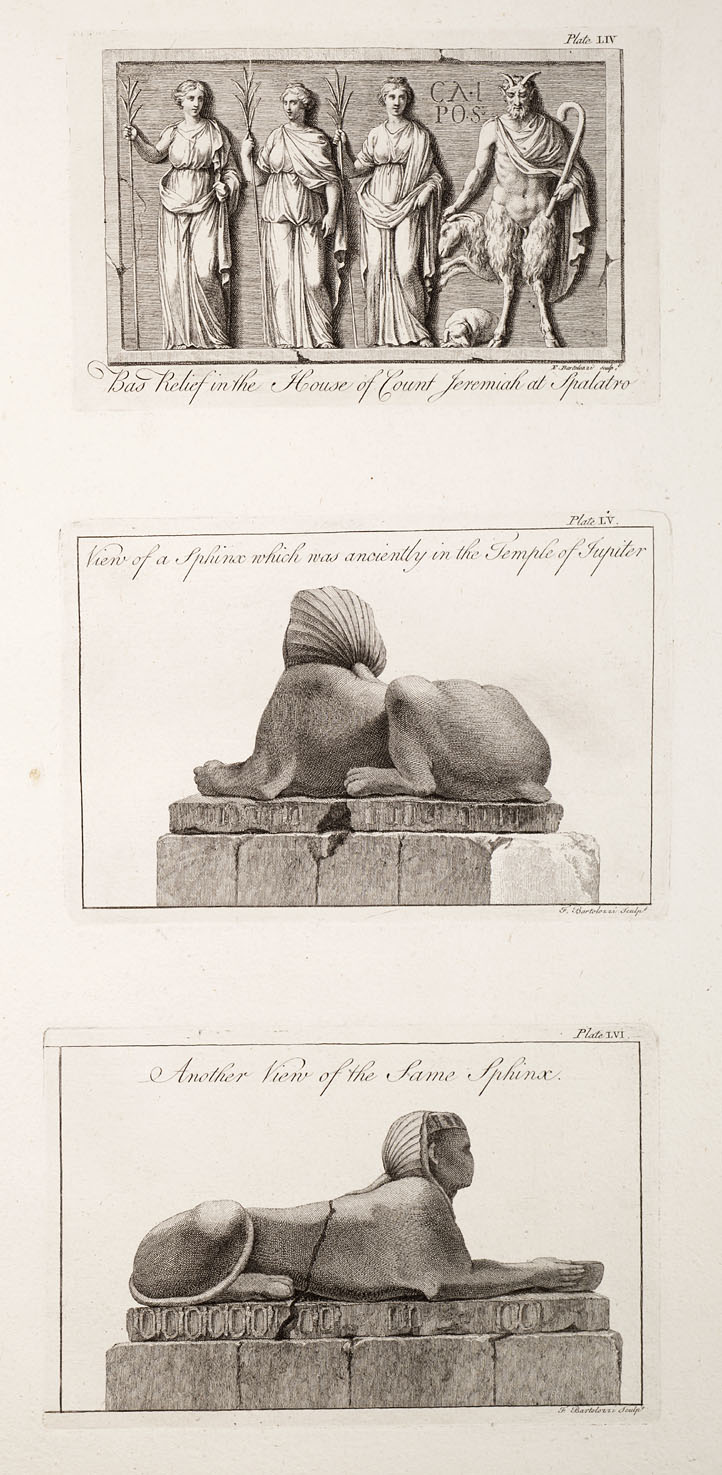 Plate LIV
CA·I
POS·
F. Bartolozzi sculp.
Bas Relief in the House of Count Jeremiah at Spalatro
Plate LV.
View of a Sphinx which was anciently in the Temple of Jupiter
F. Bartolozzi Sculpt
Plate LVI.
Another View of the Same Sphinx.
F. Bartolozzi Sculpt